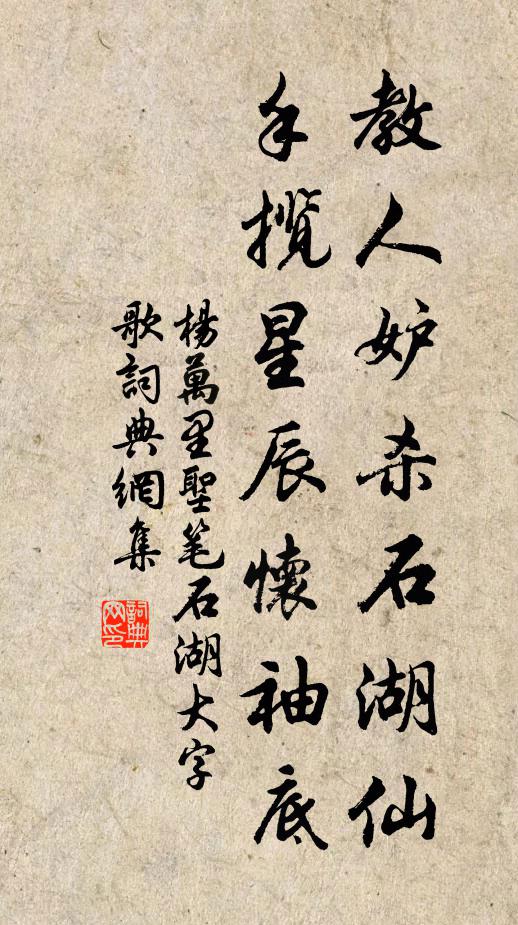 教人妒杀石湖仙
手揽星辰懷袖底
楊萬里聖笔石湖大字
歌詞典網集
詞典网印